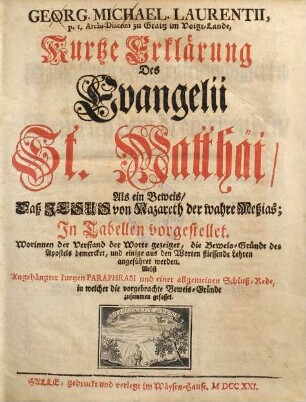 GEORG. MICHAEL. LAURENTII,
p. t. Archi-Diaconi zu Graitz im Voigt-Lande,
Kurtze Erklärung
Des
Evangelii
St. Matthäi/
Als ein Beweis/
Daß JESUS von Nazareth der wahre Meßias;
In Tabellen vorgestellet.
Worinnen der Verstand der Worte gezeiget, die Beweis-Gründe des
Apostels bemercket, und einige aus den Worten fliessende Lehren
angeführet werden.
Nebst
Angehängter kurtzen PARAPHRASI und einer allgemeinen Schluß-Rede,
in welcher die vorgebrachte Beweis-Gründe
zusammen gefasset.
HALLE, gedruckt und verlegt im Wäysen-Hause. M DCC XXI.